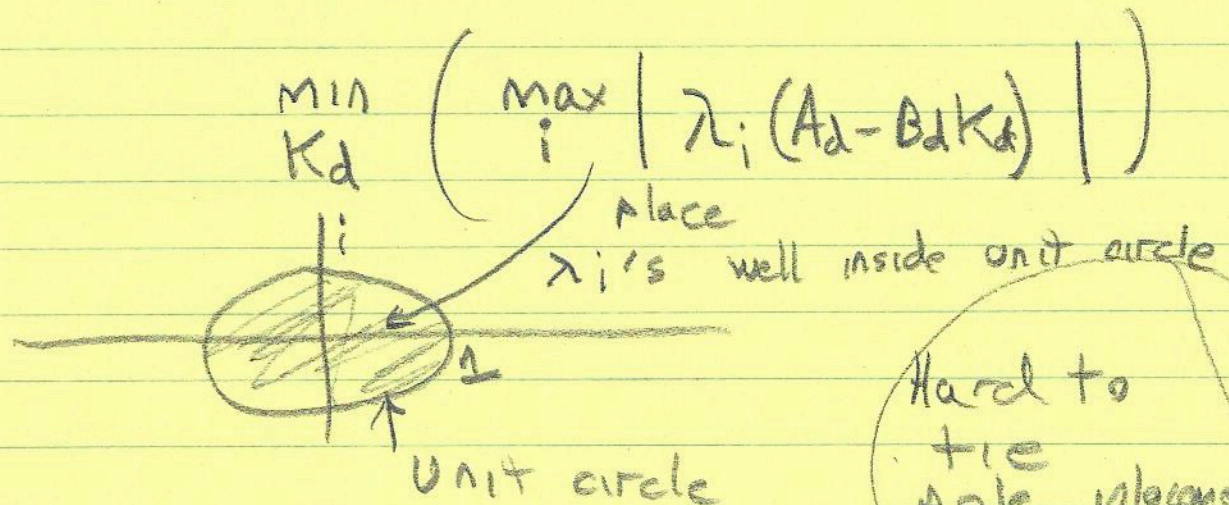 min ( max | λi (Ad - BdKd) | )
Kd i
place
λi's well inside unit circle
i
1
Unit circle
Hard to
tie
pole